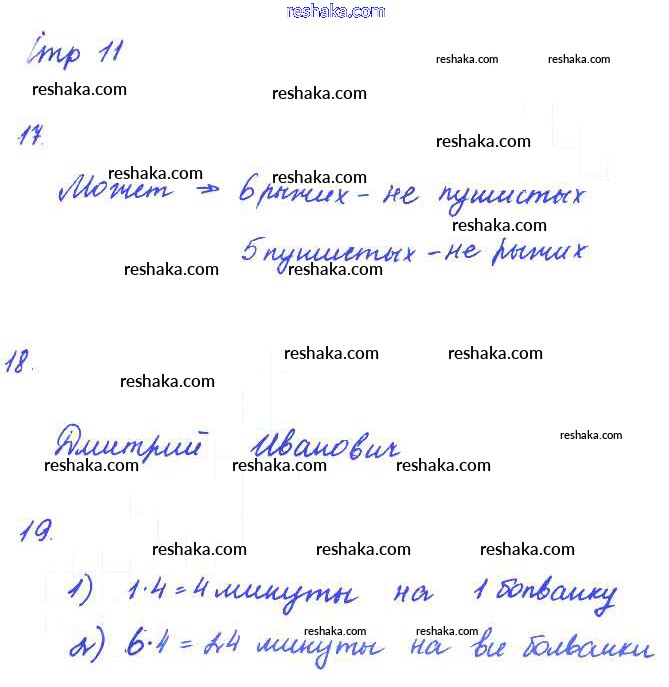 reshaka.com
стр 11
reshaka.com reshaka.com
reshaka.com reshaka.com
17.
reshaka.com
reshaka.com reshaka.com
Может → 6 рыжих - не пушистых
reshaka.com
5 пушистых - не рыжих
reshaka.com reshaka.com
18.
reshaka.com reshaka.com
reshaka.com
Дмитрий Иванович
reshaka.com
reshaka.com reshaka.com reshaka.com
19.
reshaka.com reshaka.com reshaka.com
1) 1·4 = 4 минуты на 1 болванку
reshaka.com reshaka.com
2) 6·4 = 24 минуты на все болванки